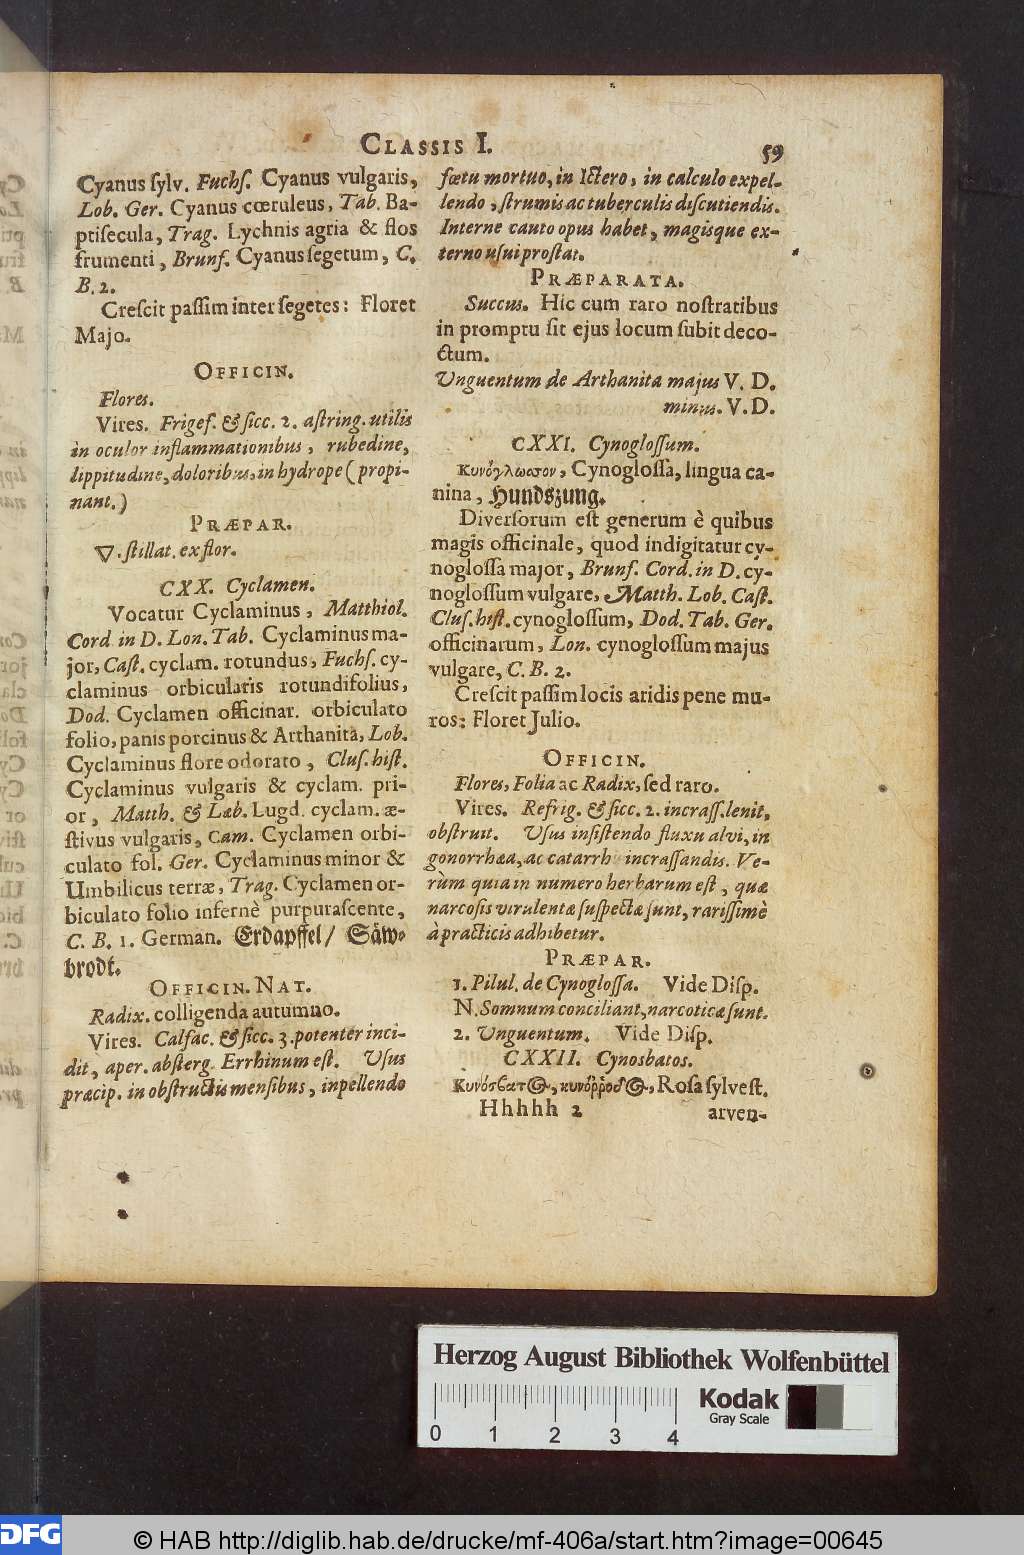 CLASSIS I.
59
Cyanus ſylv. Fuchſ. Cyanus vulgaris,
Lob. Ger. Cyanus cœruleus, Tab. Ba-
ptiſecula, Trag. Lychnis agria & flos
frumenti, Brunſ. Cyanus ſegetum, C.
B. 2.
Creſcit paſſim inter ſegetes: Floret
Majo.
OFFICIN.
Flores.
Vires. Frigeſ. & ſicc. 2. aſtring. utilis
in oculor inflammationibus, rubedine,
lippitudine, doloribus, in hydrope (propi-
nant.)
PRÆPAR.
🜄. ſtillat. ex flor.
CXX. Cyclamen.
Vocatur Cyclaminus, Matthiol.
Cord. in D. Lon. Tab. Cyclaminus ma-
jor, Caſt. cyclam. rotundus, Fuchſ. cy-
claminus orbicularis rotundifolius,
Dod. Cyclamen officinar. orbiculato
folio, panis porcinus & Arthanita, Lob.
Cyclaminus flore odorato, Cluſ. hiſt.
Cyclaminus vulgaris & cyclam. pri-
or, Matth. & Læb. Lugd. cyclam. æ-
ſtivus vulgaris, Cam. Cyclamen orbi-
culato fol. Ger. Cyclaminus minor &
Umbilicus terræ, Trag. Cyclamen or-
biculato folio infernè purpuraſcente,
C. B. 1. German. Erdapffel/ Säw-
brodt.
OFFICIN. NAT.
Radix. colligenda autumno.
Vires. Calfac. & ſicc. 3. potenter inci-
dit, aper. abſterg. Errhinum eſt. Uſus
præcip. in obſtructis menſibus, in pellendo
fœtu mortuo, in Ictero, in calculo expel-
lendo, ſtrumis ac tuberculis diſcutiendis.
Interne cauto opus habet, magisque ex-
terno uſui proſtat.
PRÆPARATA.
Succus. Hic cum raro noſtratibus
in promptu ſit ejus locum ſubit deco-
ctum.
Unguentum de Arthanita majus V. D.
minus. V. D.
CXXI. Cynogloſſum.
Κυνόγλωσσον, Cynogloſſa, lingua ca-
nina, Hundszung.
Diverſorum eſt generum è quibus
magis officinale, quod indigitatur cy-
nogloſſa major, Brunſ. Cord. in D. cy-
nogloſſum vulgare, Matth. Lob. Caſt.
Cluſ. hiſt. cynogloſſum, Dod. Tab. Ger.
officinarum, Lon. cynogloſſum majus
vulgare, C. B. 2.
Creſcit paſſim locis aridis pene mu-
ros: Floret Julio.
OFFICIN.
Flores, Folia ac Radix, ſed raro.
Vires. Refrig. & ſicc. 2. incraſſ. lenit,
obſtruit. Uſus inſiſtendo fluxu alvi, in
gonorrhœa, ac catarrh incraſſandis. Ve-
rùm quia in numero herbarum eſt, quæ
narcoſis virulentæ ſuſpectæ ſunt, rariſſimè
à practicis adhibetur.
PRÆPAR.
1. Pilul. de Cynogloſſa. Vide Diſp.
N. Somnum conciliant, narcoticæ ſunt.
2. Unguentum. Vide Diſp.
CXXII. Cynosbatos.
Κυνόσβατος, κυνόῤῥοδος, Roſa ſylveſt.
Hhhhh 2
arven-
Herzog August Bibliothek Wolfenbüttel
0 1 2 3 4
Kodak
Gray Scale
DFG
© HAB http://diglib.hab.de/drucke/mf-406a/start.htm?image=00645